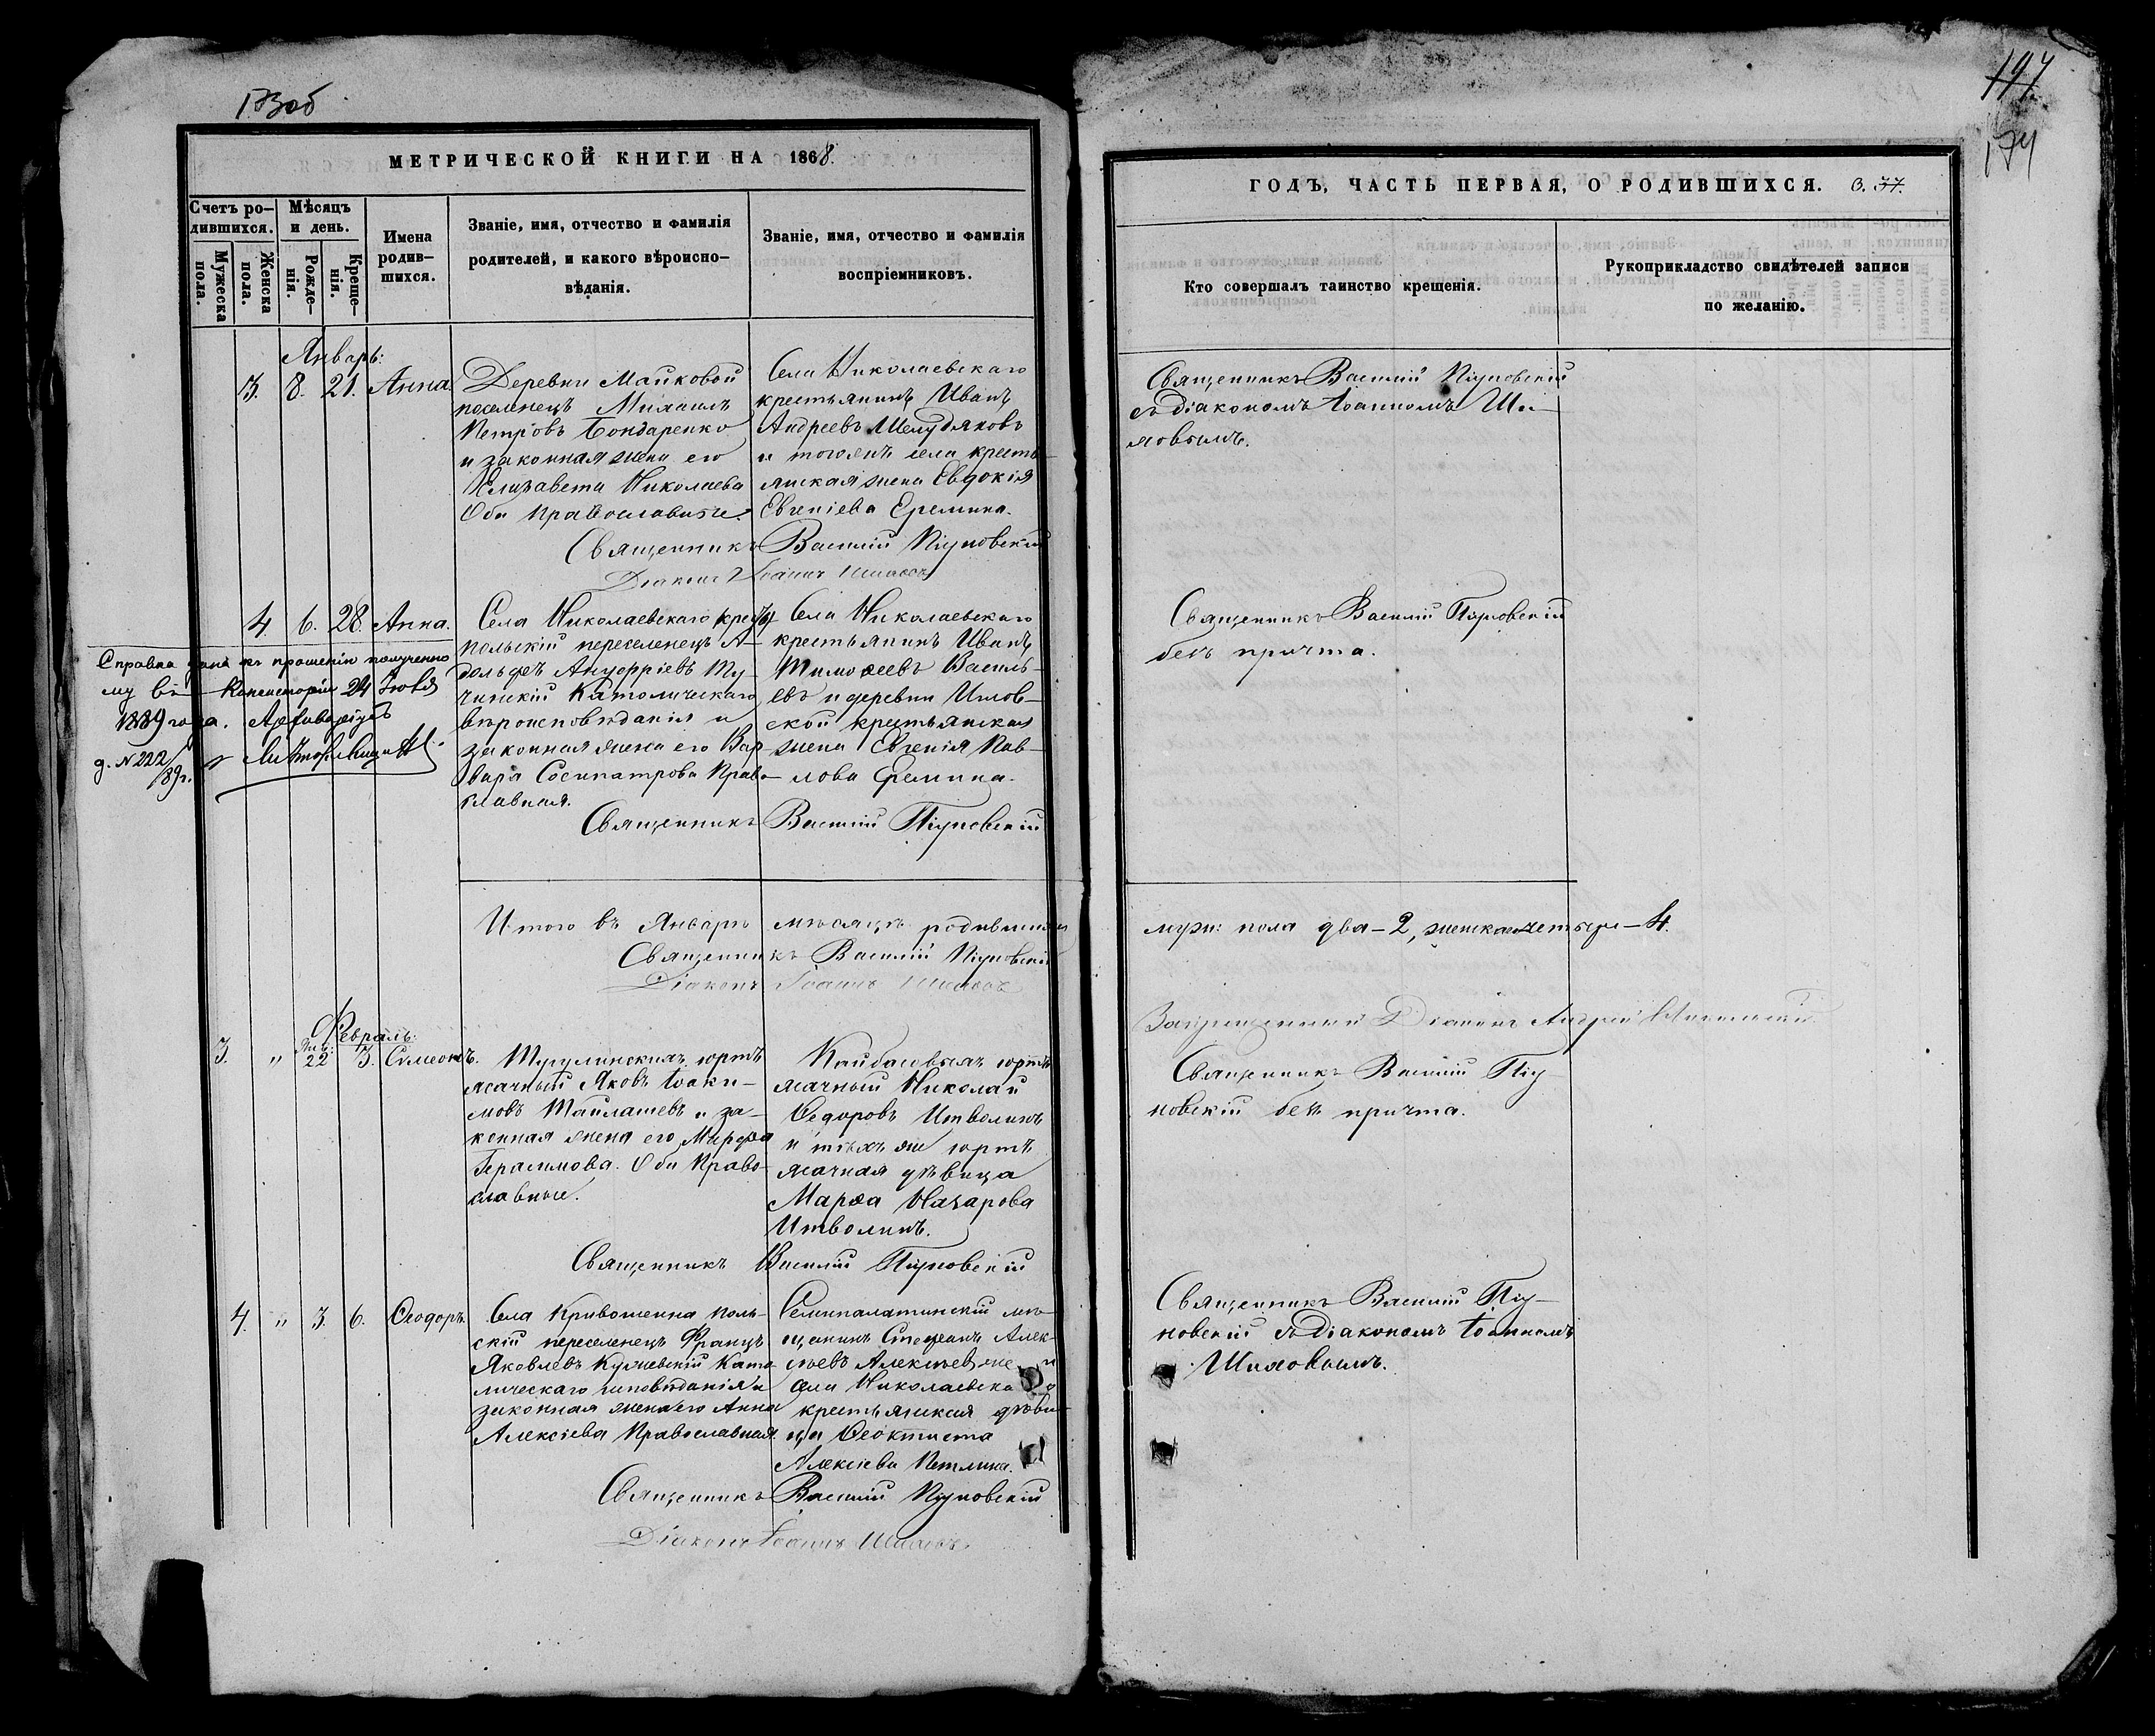 173об
МЕТРИЧЕСКОЙ КНИГИ НА 1868.
Счетъ ро-
дившихся.
Мѣсяцъ
и день.
Мужеска
пола.
Женска
пола.
Рожде-
нія.
Креще-
нія.
Имена
родив-
шихся.
Званіе, имя, отчество и фамилія
родителей, и какого вѣроиспо-
вѣданія.
Званіе, имя, отчество и фамилія
воспріемниковъ.
Январь:
3. 8. 21. Анна.
Деревни Майковой
поселенецъ Михаилъ
Петровъ Бондаренко
и законная жена его
Елизавета Николаева
Оба православные.
Села Николаевскаго
крестьянинъ Иванъ
Андреевъ Шелудяковъ
и тогоже села кресть-
янская жена Евдокія
Евгеніева Еремина.
Священникъ Василій Піуновскій
Діаконъ Іоаннъ Шиловъ
4. 6. 28. Анна.
Села Николаевскаго
польскій переселенецъ А-
дольфъ Ануфріевъ Ту-
чинскій Католическаго
вѣроисповѣданія и
законная жена его Вар-
вара Сосипатрова Право-
славная.
Села Николаевскаго
крестьянинъ Иванъ
Тимоѳеевъ Василь-
евъ и деревни Илов-
ской крестьянская
жена Евгенія Пав-
лова Еремина.
Священникъ Василій Піуновскій
Справка дана къ прошенію полученно
му въ Консисторіи 24 Іюля
1889 года. Архиваріусъ
д. N 222/89г.
Итого въ Январѣ мѣсяцѣ родившихся
Священникъ Василій Піуновскій
Діаконъ Іоаннъ Шиловъ
Февраль:
3. " Янв: 22 3. Симеонъ.
Тугулинскихъ юртъ
ясачный Яковъ Іоаки-
мовъ Тайлашевъ и за-
конная жена его Марѳа
Герасимова. Оба Право-
славные.
Кайбасовыхъ юртъ
ясачный Николай
Ѳедоровъ Итволинъ
и тѣхъ же юртъ
ясачная дѣвица
Марѳа Назарова
Итволинъ.
Священникъ Василій Піуновскій
4. " 3. 6. Ѳеодоръ.
Села Кривошеина поль-
скій переселенецъ Францъ
Яковлевъ Католи-
ческаго исповѣданія и
законная жена его Анна
Алексіева Православная.
Семипалатинскій мѣ-
щанинъ Стефанъ Алек-
сѣевъ
села Николаевска о
крестьянская дѣви-
ца Ѳеоктиста
Алексіева Петлина.
Священникъ Василій Піуновскій
Діаконъ Іоаннъ Шиловъ.
197
174
ГОДЪ, ЧАСТЬ ПЕРВАЯ, О РОДИВШИХСЯ. 37.
Кто совершалъ таинство крещенія.
Рукоприкладство свидѣтелей записи
по желанію.
Священникъ Василій Піуновскій
съ Діакономъ Іоанномъ Ши-
ловымъ.
Священникъ Василій Піуновскій
безъ причта.
муж: пола два - 2, женска четыре - 4.
Запрещенный Діаконъ Андрей
Священникъ Василій Піу-
новскій безъ причта.
Священникъ Василій Піу-
новскій съ Діакономъ Іоанномъ
Шиловымъ.